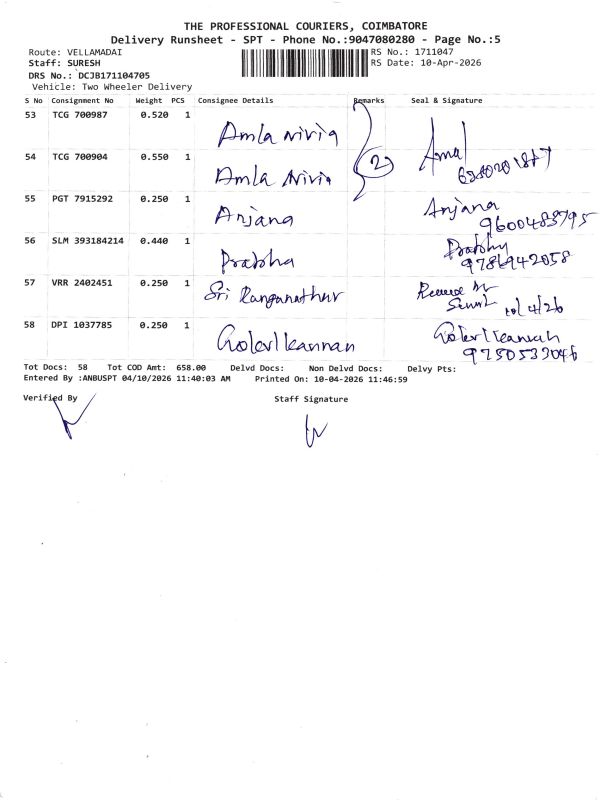 THE PROFESSIONAL COURIERS, COIMBATORE
Delivery Runsheet - SPT - Phone No.:9047080280 - Page No.:5
Route: VELLAMADAI RS No.: 1711047
Staff: SURESH RS Date: 10-Apr-2026
DRS No.: DCJB171104705
Vehicle: Two Wheeler Delivery
S No Consignment No Weight PCS Consignee Details Remarks Seal & Signature
53 TCG 700987 0.520 1 Amla nivia
54 TCG 700904 0.550 1 Amla Nivia 2 Amal
55 PGT 7915292 0.250 1 Anjana Anjana 9600483795
56 SLM 393184214 0.440 1 Prabha Prabhu 9786942058
57 VRR 2402451 0.250 1 Sri Ranganathar 10/4/26
58 DPI 1037785 0.250 1
Tot Docs: 58 Tot COD Amt: 658.00 Delvd Docs: Non Delvd Docs: Delvy Pts:
Entered By :ANBUSPT 04/10/2026 11:40:03 AM Printed On: 10-04-2026 11:46:59
Verified By Staff Signature